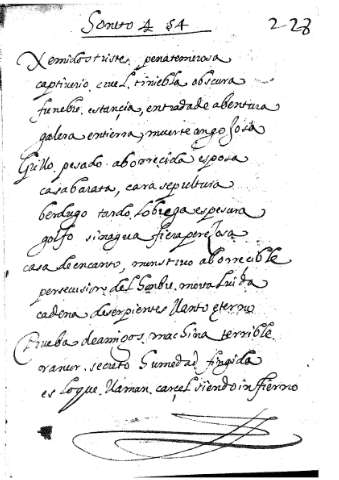 Soneto 4 54
2-23
Xemido triste, pena temerosa
captiverio cruel, tiniebla obscura
funebre estançia, entrada de abentura
galera en tierra, muerte angojosa
Grillo pesado aborreçida esposa
casa barata, cara sepultura
berdugo tardo lobrega espesura
golfo sin agua fiera pereçosa
casa de encanto, munstruo aborreçible
persecusion del honbre
cadena de serpientes llanto eterno
Prueba de amigos, machina terrible
rancor secreto humedad fingida
es lo que llaman carçel siendo infierno